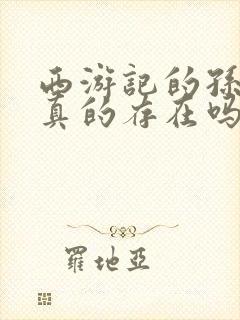 西游記的孫
真的存在嗎
羅地亞